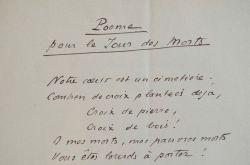 Poème
pour le Jour des Morts
Notre cœur est un cimetière.
Combien de croix plantées déjà,
Croix de pierre,
Croix de bois !
O mes morts, mes pauvres morts
Vous êtes lourds à porter !